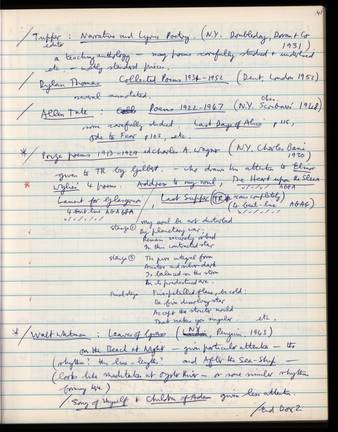 / Tupper: Narrative and Lyric Poetry. (N.Y. Doubleday, Doran & Co
editor 1931)
a teaching anthology – many poems carefully studied & underlined
etc. – mostly standard pieces.
/ Dylan Thomas Collected Poems 1934–1952 (Dent, London 1952)
several annotated.
/ Allen Tate Poems 1922–1947 (N.Y. Scribners 1948)
some carefully studied. Last Days of Alice p 115,
Ode to Fear p 102, etc
* / Prize poems 1913–1929 ed Charles A. Wagner (N.Y. Charles Boni
1930)
– given to TR by – who draws his attention to Elinor
Wylie's 4 poems. Address to my soul, The Heart upon the Sleeve
Lament for Glasgerion / Last Supper (TR
4 beat-line (4 beat-line
stanza ① may not be disturbed
By planetary war;
Remain securely orbed
In this contracted star
stanza ② The pure integral form
Austere and silver-dark
Is balanced on the storm
In its predicted arc.
Final stage Five-petalled flame, be cold:
Be firm, dissolving star
Accept the stricter mould
That makes you singular. etc.
* / Walt Whitman: Leaves of Grass (N.Y. Penguin,
On the Beach at Night – give particular attention – the
(rhythm? the line-length? and After the Sea-Ship –
(looks like meditation at Oyster River – or some similar rhythm
/ Song of Myself & Children of Adam given less attention.
/ End Box 2